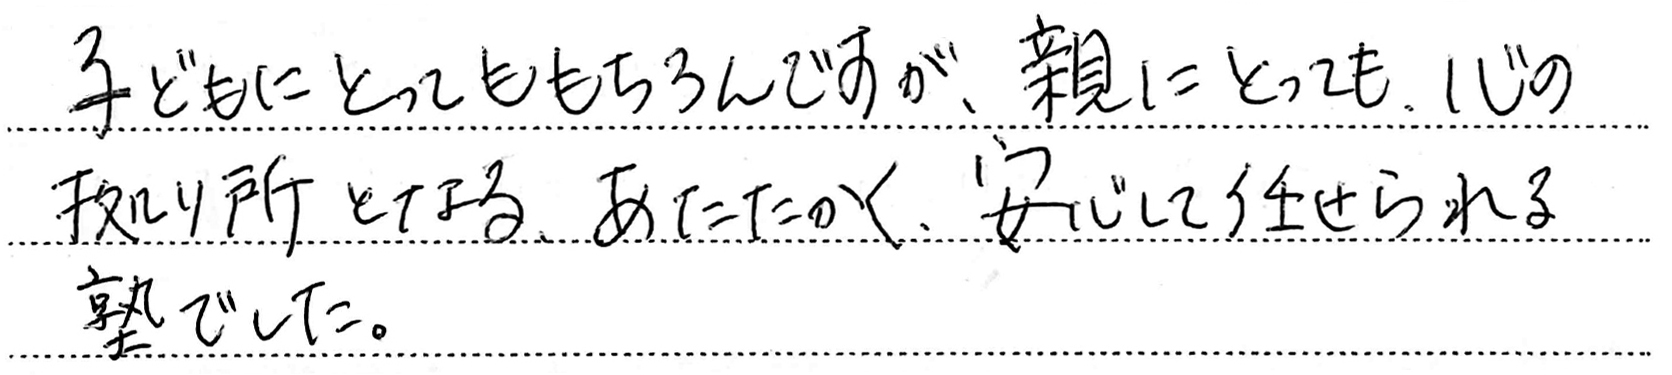 子どもにとってももちろんですが、親にとっても、心の
拠り所となる、あたたかく、安心して任せられる
塾でした。